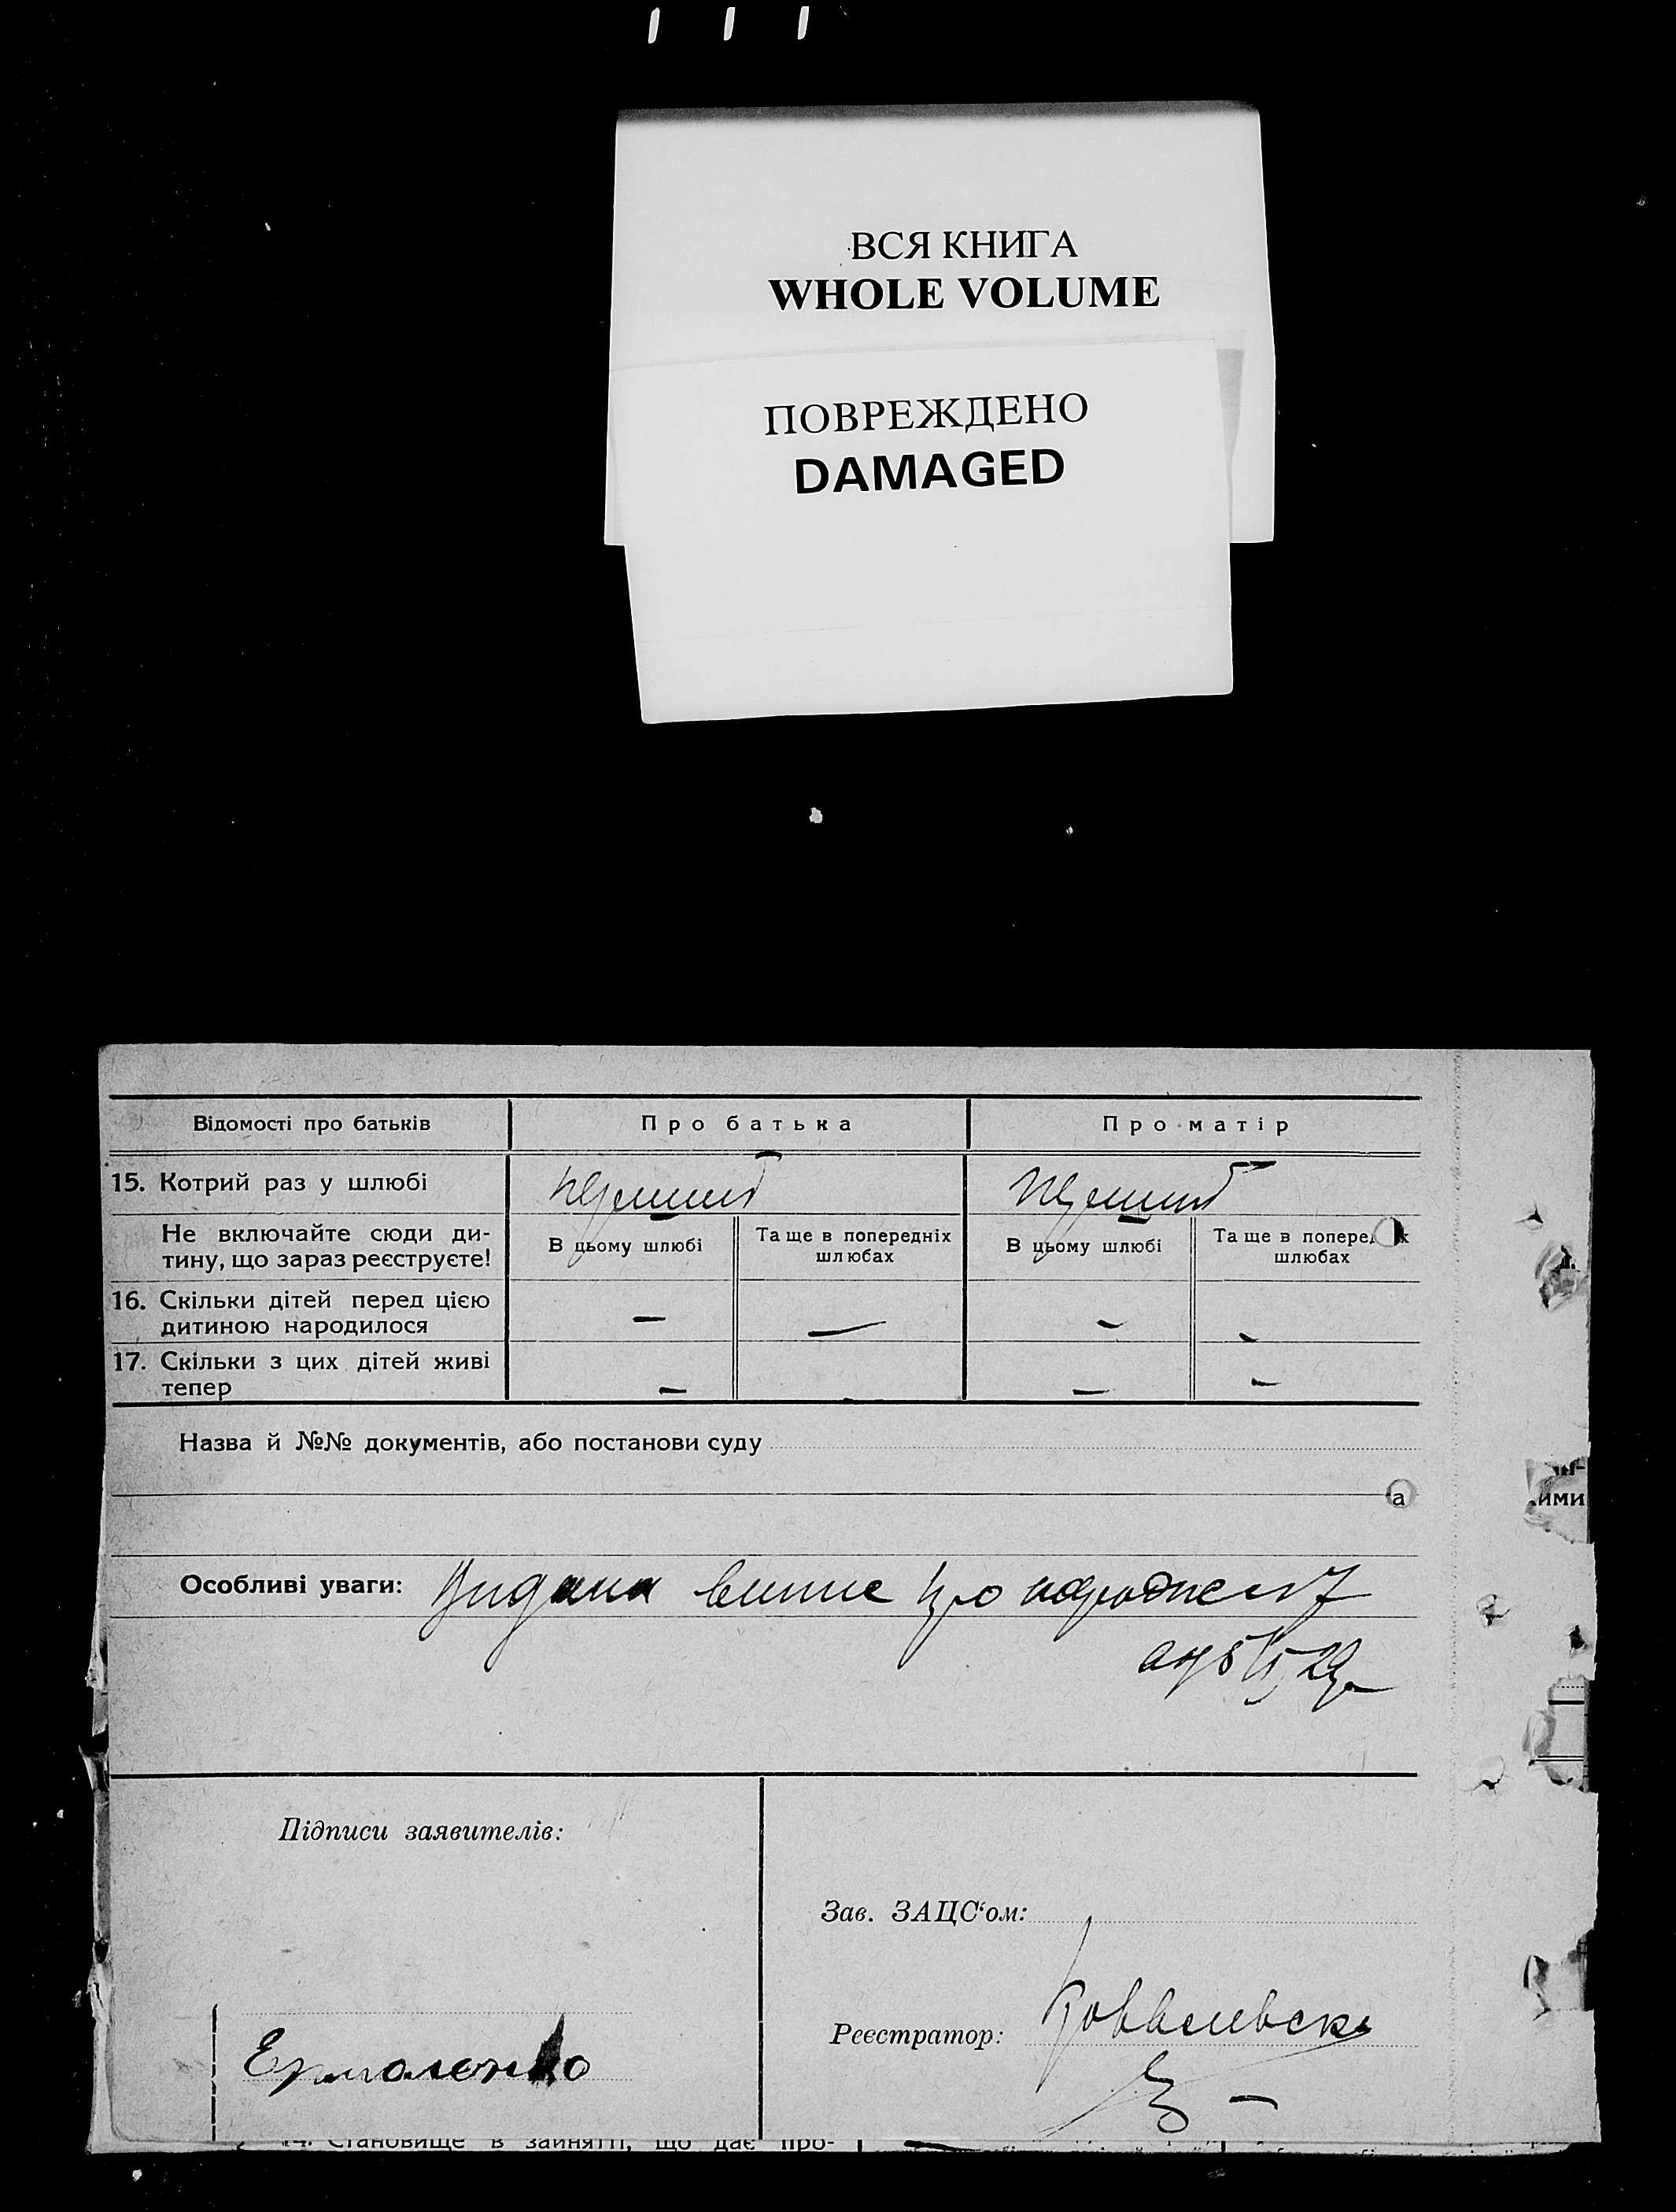 ВСЯ КНИГА
WHOLE VOLUME
ПОВРЕЖДЕНО
DAMAGED
Відомості про батьків
Про батька
Про матір
15. Котрий раз у шлюбі
Не включайте сюди ди-
тину, що зараз реєструєте!
В цьому шлюбі
Та ще в попередніх
шлюбах
В цьому шлюбі
Та ще в попере
шлюбах
16. Скільки дітей перед цією
дитиною народилося
— — — —
17. Скільки з цих дітей живі
тепер
— — —
Назва й №№ документів, або постанови суду
а
ими
Особливі уваги: Видана про
29
Підписи заявителів:
Зав. ЗАЦС‘ом:
Реєстратор:
Ермоленко
14. Становище в занятті, що дає про-